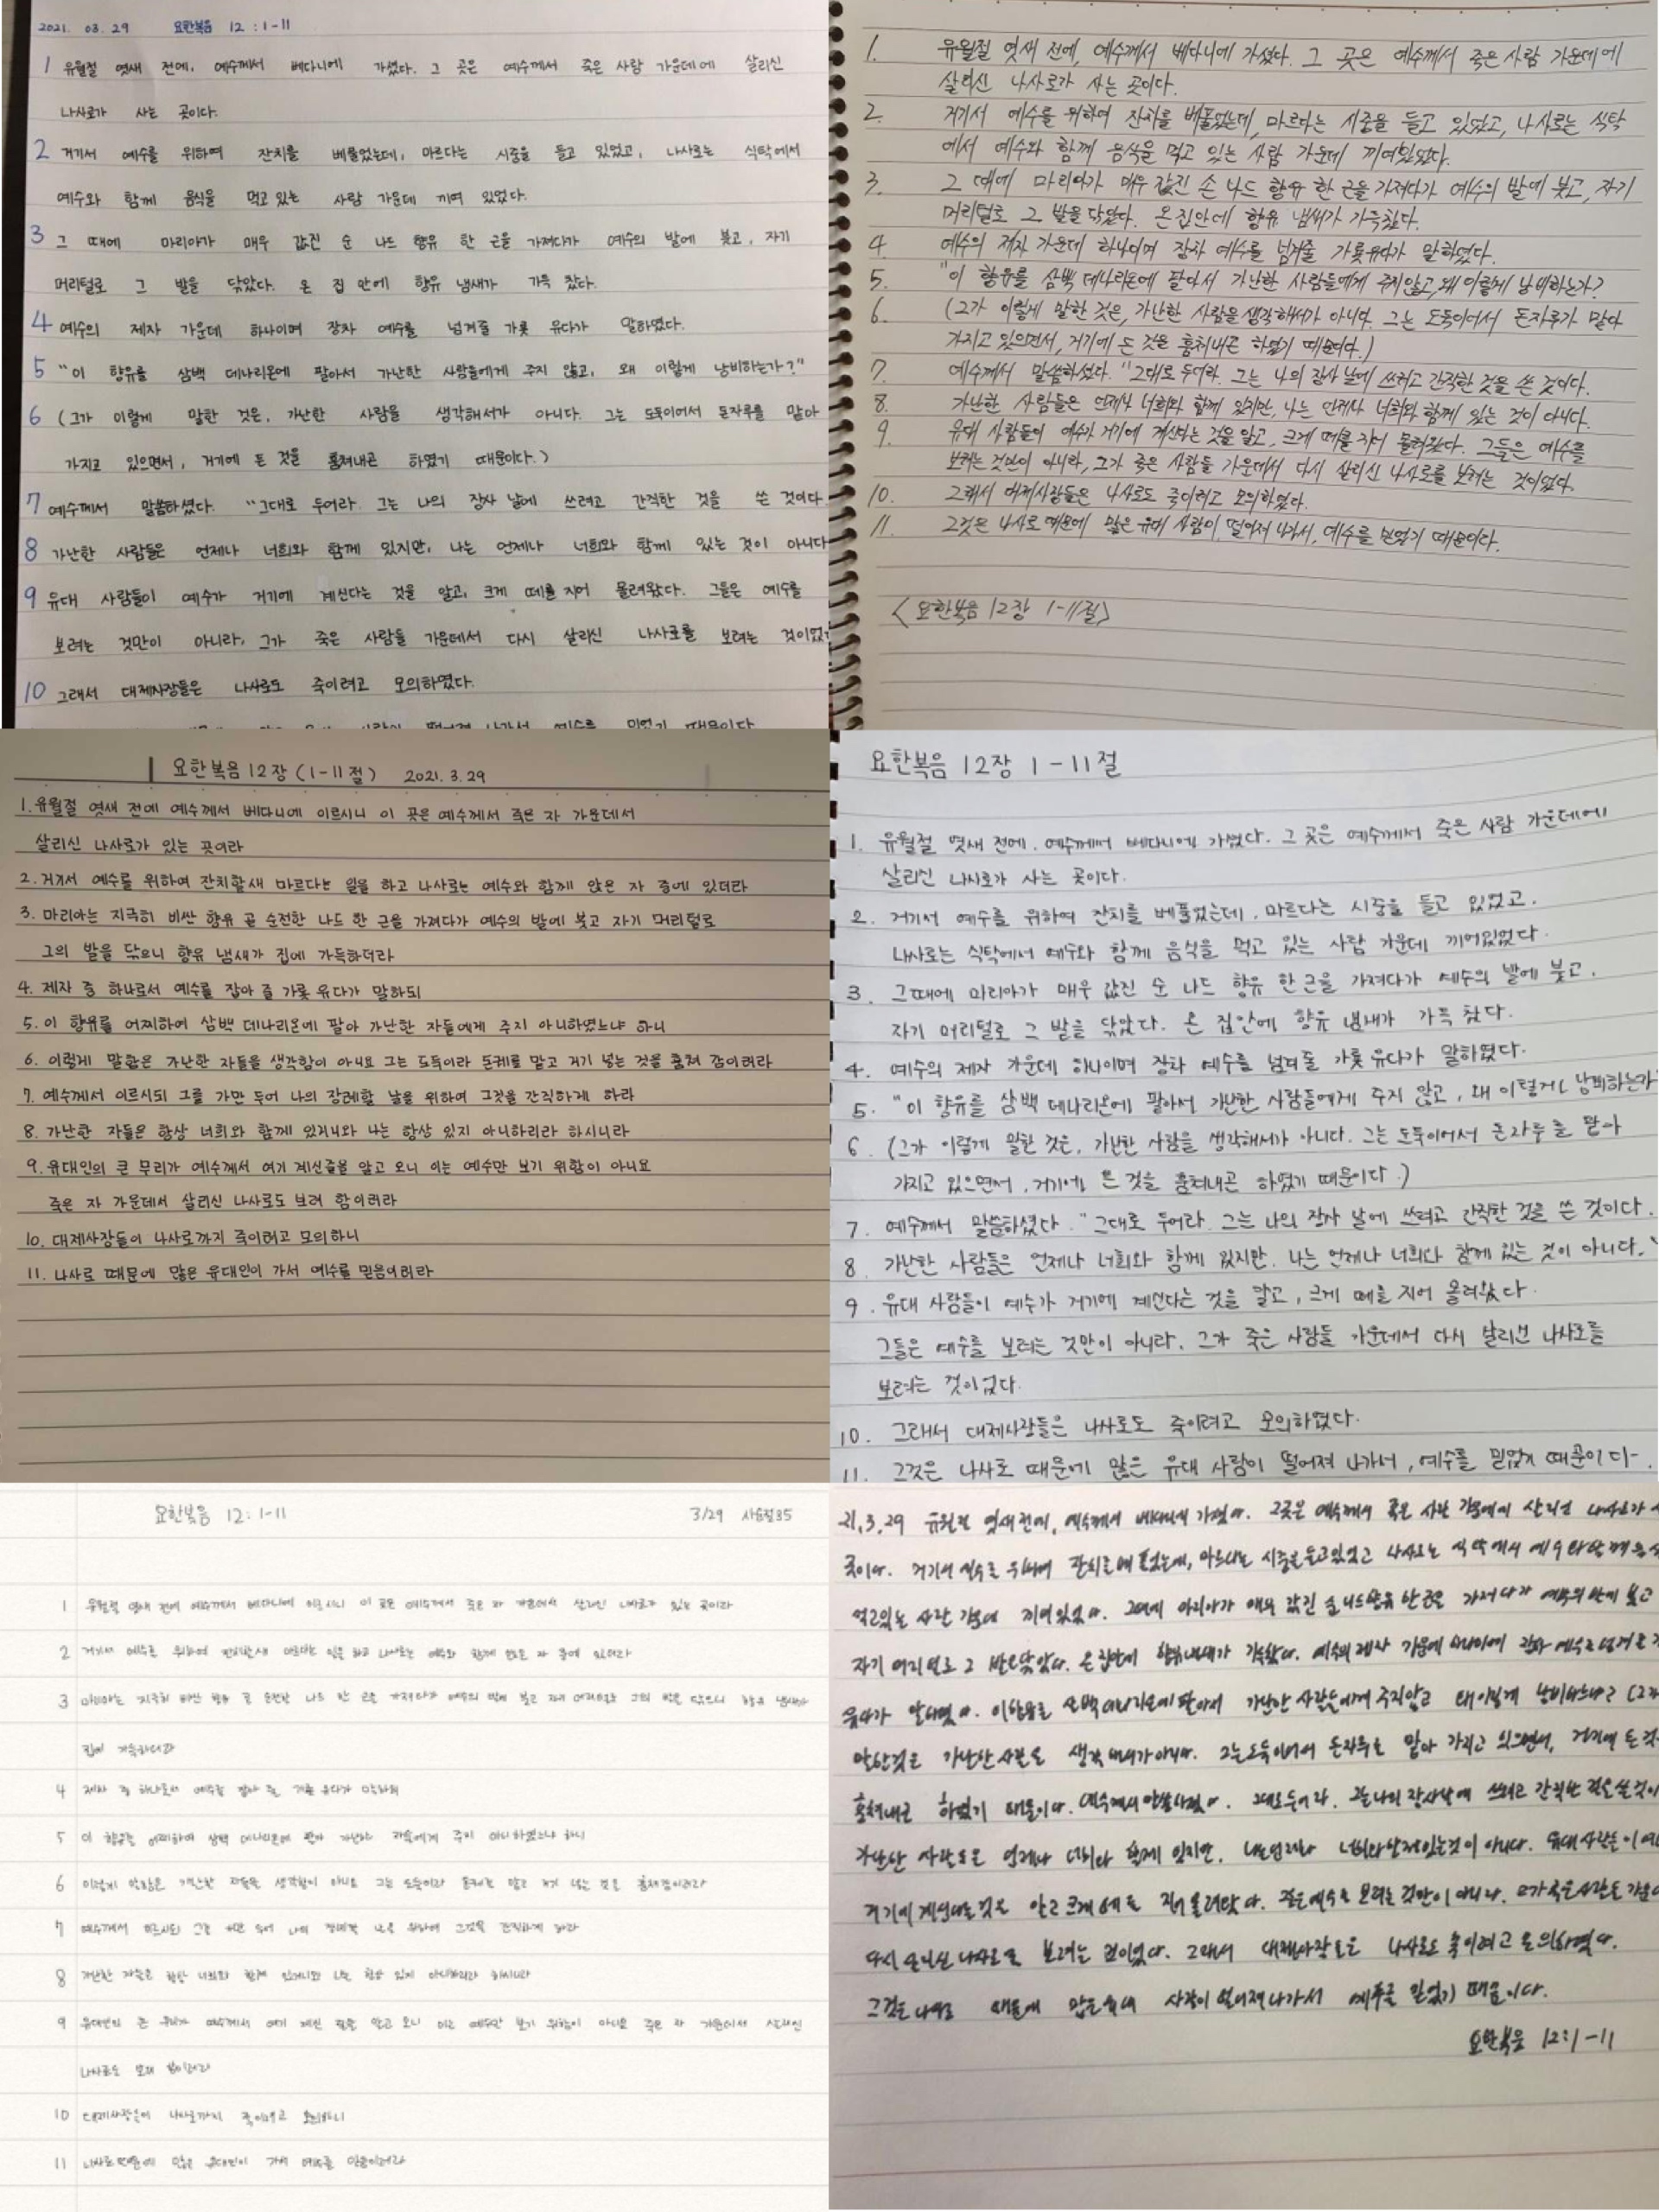 2021. 03. 29 요한복음 12 : 1-11
1 유월절 엿새 전에, 예수께서 베다니에 가셨다. 그 곳은 예수께서 죽은 사람 가운데에 살리신
나사로가 사는 곳이다.
2 거기서 예수를 위하여 잔치를 베풀었는데, 마르다는 시중을 들고 있었고, 나사로는 식탁에서
예수와 함께 음식을 먹고 있는 사람 가운데 끼여 있었다.
3 그 때에 마리아가 매우 값진 순 나드 향유 한 근을 가져다가 예수의 발에 붓고, 자기
머리털로 그 발을 닦았다. 온 집 안에 향유 냄새가 가득 찼다.
4 예수의 제자 가운데 하나이며 장차 예수를 넘겨줄 가룟 유다가 말하였다.
5 "이 향유를 삼백 데나리온에 팔아서 가난한 사람들에게 주지 않고, 왜 이렇게 낭비하는가?"
6 (그가 이렇게 말한 것은, 가난한 사람을 생각해서가 아니다. 그는 도둑이어서 돈자루를 맡아
가지고 있으면서, 거기에 든 것을 훔쳐내곤 하였기 때문이다.)
7 예수께서 말씀하셨다. "그대로 두어라. 그는 나의 장사 날에 쓰려고 간직한 것을 쓴 것이다
8 가난한 사람들은 언제나 너희와 함께 있지만, 나는 언제나 너희와 함께 있는 것이 아니다
9 유대 사람들이 예수가 거기에 계신다는 것을 알고, 크게 떼를 지어 몰려왔다. 그들은 예수를
보려는 것만이 아니라, 그가 죽은 사람들 가운데서 다시 살리신 나사로를 보려는 것이었
10 그래서 대제사장들은 나사로도 죽이려고 모의하였다.
떨어져 나가서 예수를 믿었기 때문이다
1. 유월절 엿새 전에, 예수께서 베다니에 가셨다. 그 곳은 예수께서 죽은 사람 가운데에
살리신 나사로가 사는 곳이다.
2. 거기서 예수를 위하여 잔치를 베풀었는데, 마르다는 시중을 들고 있었고, 나사로는 식탁
에서 예수와 함께 음식을 먹고 있는 사람 가운데 끼여있었다.
3. 그 때에 마리아가 매우 값진 순 나드 향유 한 근을 가져다가 예수의 발에 붓고, 자기
머리털로 그 발을 닦았다. 온 집안에 향유 냄새가 가득찼다.
4. 예수의 제자 가운데 하나이며 장차 예수를 넘겨줄 가룟유다가 말하였다.
5. "이 향유를 삼백 데나리온에 팔아서 가난한 사람들에게 주지않고, 왜 이렇게 낭비하는가?
6. (그가 이렇게 말한 것은, 가난한 사람을 생각해서가 아니다. 그는 도둑이어서 돈자루가 맡아
가지고 있으면서, 거기에 든 것을 훔쳐내곤 하였기 때문이다.)
7. 예수께서 말씀하셨다. "그대로 두어라. 그는 나의 장사 날에 쓰려고 간직한 것을 쓴 것이다.
8. 가난한 사람들은 언제나 너희와 함께 있지만, 나는 언제나 너희와 함께 있는 것이 아니다.
9. 유대 사람들이 예수가 거기에 계신다는 것을 알고, 크게 떼를 지어 몰려왔다. 그들은 예수를
보려는 것만이 아니라, 그가 죽은 사람들 가운데서 다시 살리신 나사로를 보려는 것이었다.
10. 그래서 대제사장들은 나사로도 죽이려고 모의하였다.
11. 그것은 나사로 때문에 많은 유대 사람이 떨어져 나가서, 예수를 믿었기 때문이다.
<요한복음 12장 1-11절>
요한복음 12장 (1-11절) 2021. 3. 29
1. 유월절 엿새 전에 예수께서 베다니에 이르시니 이 곳은 예수께서 죽은 자 가운데서
살리신 나사로가 있는 곳이라
2. 거기서 예수를 위하여 잔치할새 마르다는 일을 하고 나사로는 예수와 함께 앉은 자 중에 있더라
3. 마리아는 지극히 비싼 향유 곧 순전한 나드 한 근을 가져다가 예수의 발에 붓고 자기 머리털로
그의 발을 닦으니 향유 냄새가 집에 가득하더라
4. 제자 중 하나로서 예수를 잡아 줄 가룟 유다가 말하되
5. 이 향유를 어찌하여 삼백 데나리온에 팔아 가난한 자들에게 주지 아니하였느냐 하니
6. 이렇게 말함은 가난한 자들을 생각함이 아니요 그는 도둑이라 돈궤를 맡고 거기 넣는 것을 훔쳐 감이러라
7. 예수께서 이르시되 그를 가만 두어 나의 장례할 날을 위하여 그것을 간직하게 하라
8. 가난한 자들은 항상 너희와 함께 있거니와 나는 항상 있지 아니하리라 하시니라
9. 유대인의 큰 무리가 예수께서 여기 계신줄을 알고 오니 이는 예수만 보기 위함이 아니요
죽은 자 가운데서 살리신 나사로도 보려 함이러라
10. 대제사장들이 나사로까지 죽이려고 모의하니
11. 나사로 때문에 많은 유대인이 가서 예수를 믿음이러라
요한복음 12장 1-11절
1. 유월절 엿새 전에. 예수께서 베다니에 가셨다. 그 곳은 예수께서 죽은 사람 가운데에
살리신 나시로가 사는 곳이다.
2. 거기서 예수를 위하여 잔치를 베풀었는데, 마르다는 시중을 들고 있었고.
나사로는 식탁에서 예수와 함께 음식을 먹고 있는 사람 가운데 끼어있었다.
3. 그때에 마리아가 매우 값진 순 나드 향유 한 근을 가져다가 예수의 발에 붓고.
자기 머리털로 그 발을 닦았다. 온 집안에 향유 냄새가 가득 찼다.
4. 예수의 제자 가운데 하나이며 장차 예수를 넘겨줄 가룟 유다가 말하였다.
5. "이 향유를 삼백 데나리온에 팔아서 가난한 사람들에게 주지 않고, 왜 이렇게 낭비하는가
6. (그가 이렇게 말한 것은, 가난한 사람을 생각해서가 아니다. 그는 도둑이어서 돈자루를 맡아
가지고 있으면서, 거기에 든 것을 훔쳐내곤 하였기 때문이다.)
7. 예수께서 말씀하셨다. "그대로 두어라. 그는 나의 장사 날에 쓰려고 간직한 것을 쓴 것이다.
8. 가난한 사람들은 언제나 너희와 함께 있지만. 나는 언제나 너희와 함께 있는 것이 아니다."
9. 유대 사람들이 예수가 거기에 계신다는 것을 알고, 크게 떼를 지어 몰려왔다.
그들은 예수를 보려는 것만이 아니라. 그가 죽은 사람들 가운데서 다시 살리신 나사로를
보려는 것이었다.
10. 그래서 대제사장들은 나사로도 죽이려고 모의하였다.
11. 그것은 나사로 때문에 많은 유대 사람이 떨어져 나가서, 예수를 믿었기 때문이다.
요한복음 12: 1-11 3/29 사순절35
1 유월절 엿새 전에 예수께서 베다니에 이르시니 이 곳은 예수께서 죽은 자 가운데서 살리신 나사로가 있는 곳이라
2 거기서 예수를 위하여 잔치할새 마르다는 일을 하고 나사로는 예수와 함께 앉은 자 중에 있더라
3 마리아는 지극히 비싼 향유 곧 순전한 나드 한 근을 가져다가 예수의 발에 붓고 자기 머리털로 그의 발을 닦으니 향유 냄새가
집에 가득하더라
4 제자 중 하나로서 예수를 잡아 줄 가룟 유다가 말하되
5 이 향유를 어찌하여 삼백 데나리온에 팔아 가난한 자들에게 주지 아니하였느냐 하니
6 이렇게 말함은 가난한 자들을 생각함이 아니요 그는 도둑이라 돈궤를 맡고 거기 넣는 것을 훔쳐감이러라
7 예수께서 이르시되 그를 가만 두어 나의 장례할 날을 위하여 그것을 간직하게 하라
8 가난한 자들은 항상 너희와 함께 있거니와 나는 항상 있지 아니하리라 하시니라
9 유대인의 큰 무리가 예수께서 여기 계신 줄을 알고 오니 이는 예수만 보기 위함이 아니요 죽은 자 가운데서 살리신
나사로도 보려 함이러라
10 대제사장들이 나사로까지 죽이려고 모의하니
11 나사로 때문에 많은 유대인이 가서 예수를 믿음이러라
21. 3. 29 유월절 엿새전에, 예수께서 베다니에 가셨다. 그곳은 예수께서 죽은 사람 가운데에 살리신 나사로가
곳이다. 거기서 예수를 위하여 잔치를 베풀었는데, 마르다는 시중을들고있었고 나사로는 식탁에서 예수와함께 음식
먹고있는 사람 가운데 끼여있었다. 그때에 마리아가 매우 값진 순나드향유 한근을 가져다가 예수의 발에 붓고
자기 머리털로 그 발을닦았다. 온집안에 향유냄새가 가득찼다. 예수의 제자 가운데 하나이며 장차 예수를 넘겨줄
유다가 말하였다. 이향유를 삼백데나리온에팔아서 가난한 사람들에게 주지않고 왜이렇게 낭비하는가? (그가
말한것은 가난한사람을 생각해서가아니다. 그는도둑이어서 돈자루를 맡아 가지고 있으면서, 거기에 든것
훔쳐내곤 하였기 때문이다. 예수께서말씀하셨다. 그대로두어라. 그는나의 장사날에 쓰려고 간직한 것을쓴것이
가난한 사람들은 언제나 너희와 함께 있지만, 나는언제나 너희와함께있는것이 아니다. 유대사람들이
거기에 계신다는것을 알고 크게 떼를 지어 몰려왔다. 그들은예수를 보려는 것만이 아니라. 그가죽은사람들
다시 살리신 나사로를 보려는 것이었다. 그래서 대제사장들은 나사로도 죽이려고 모의하였다.
그것은 나사로 때문에 많은유대 사람이 떨어져나가서 예수를 믿었기 때문이다.
요한복음 12:1-11